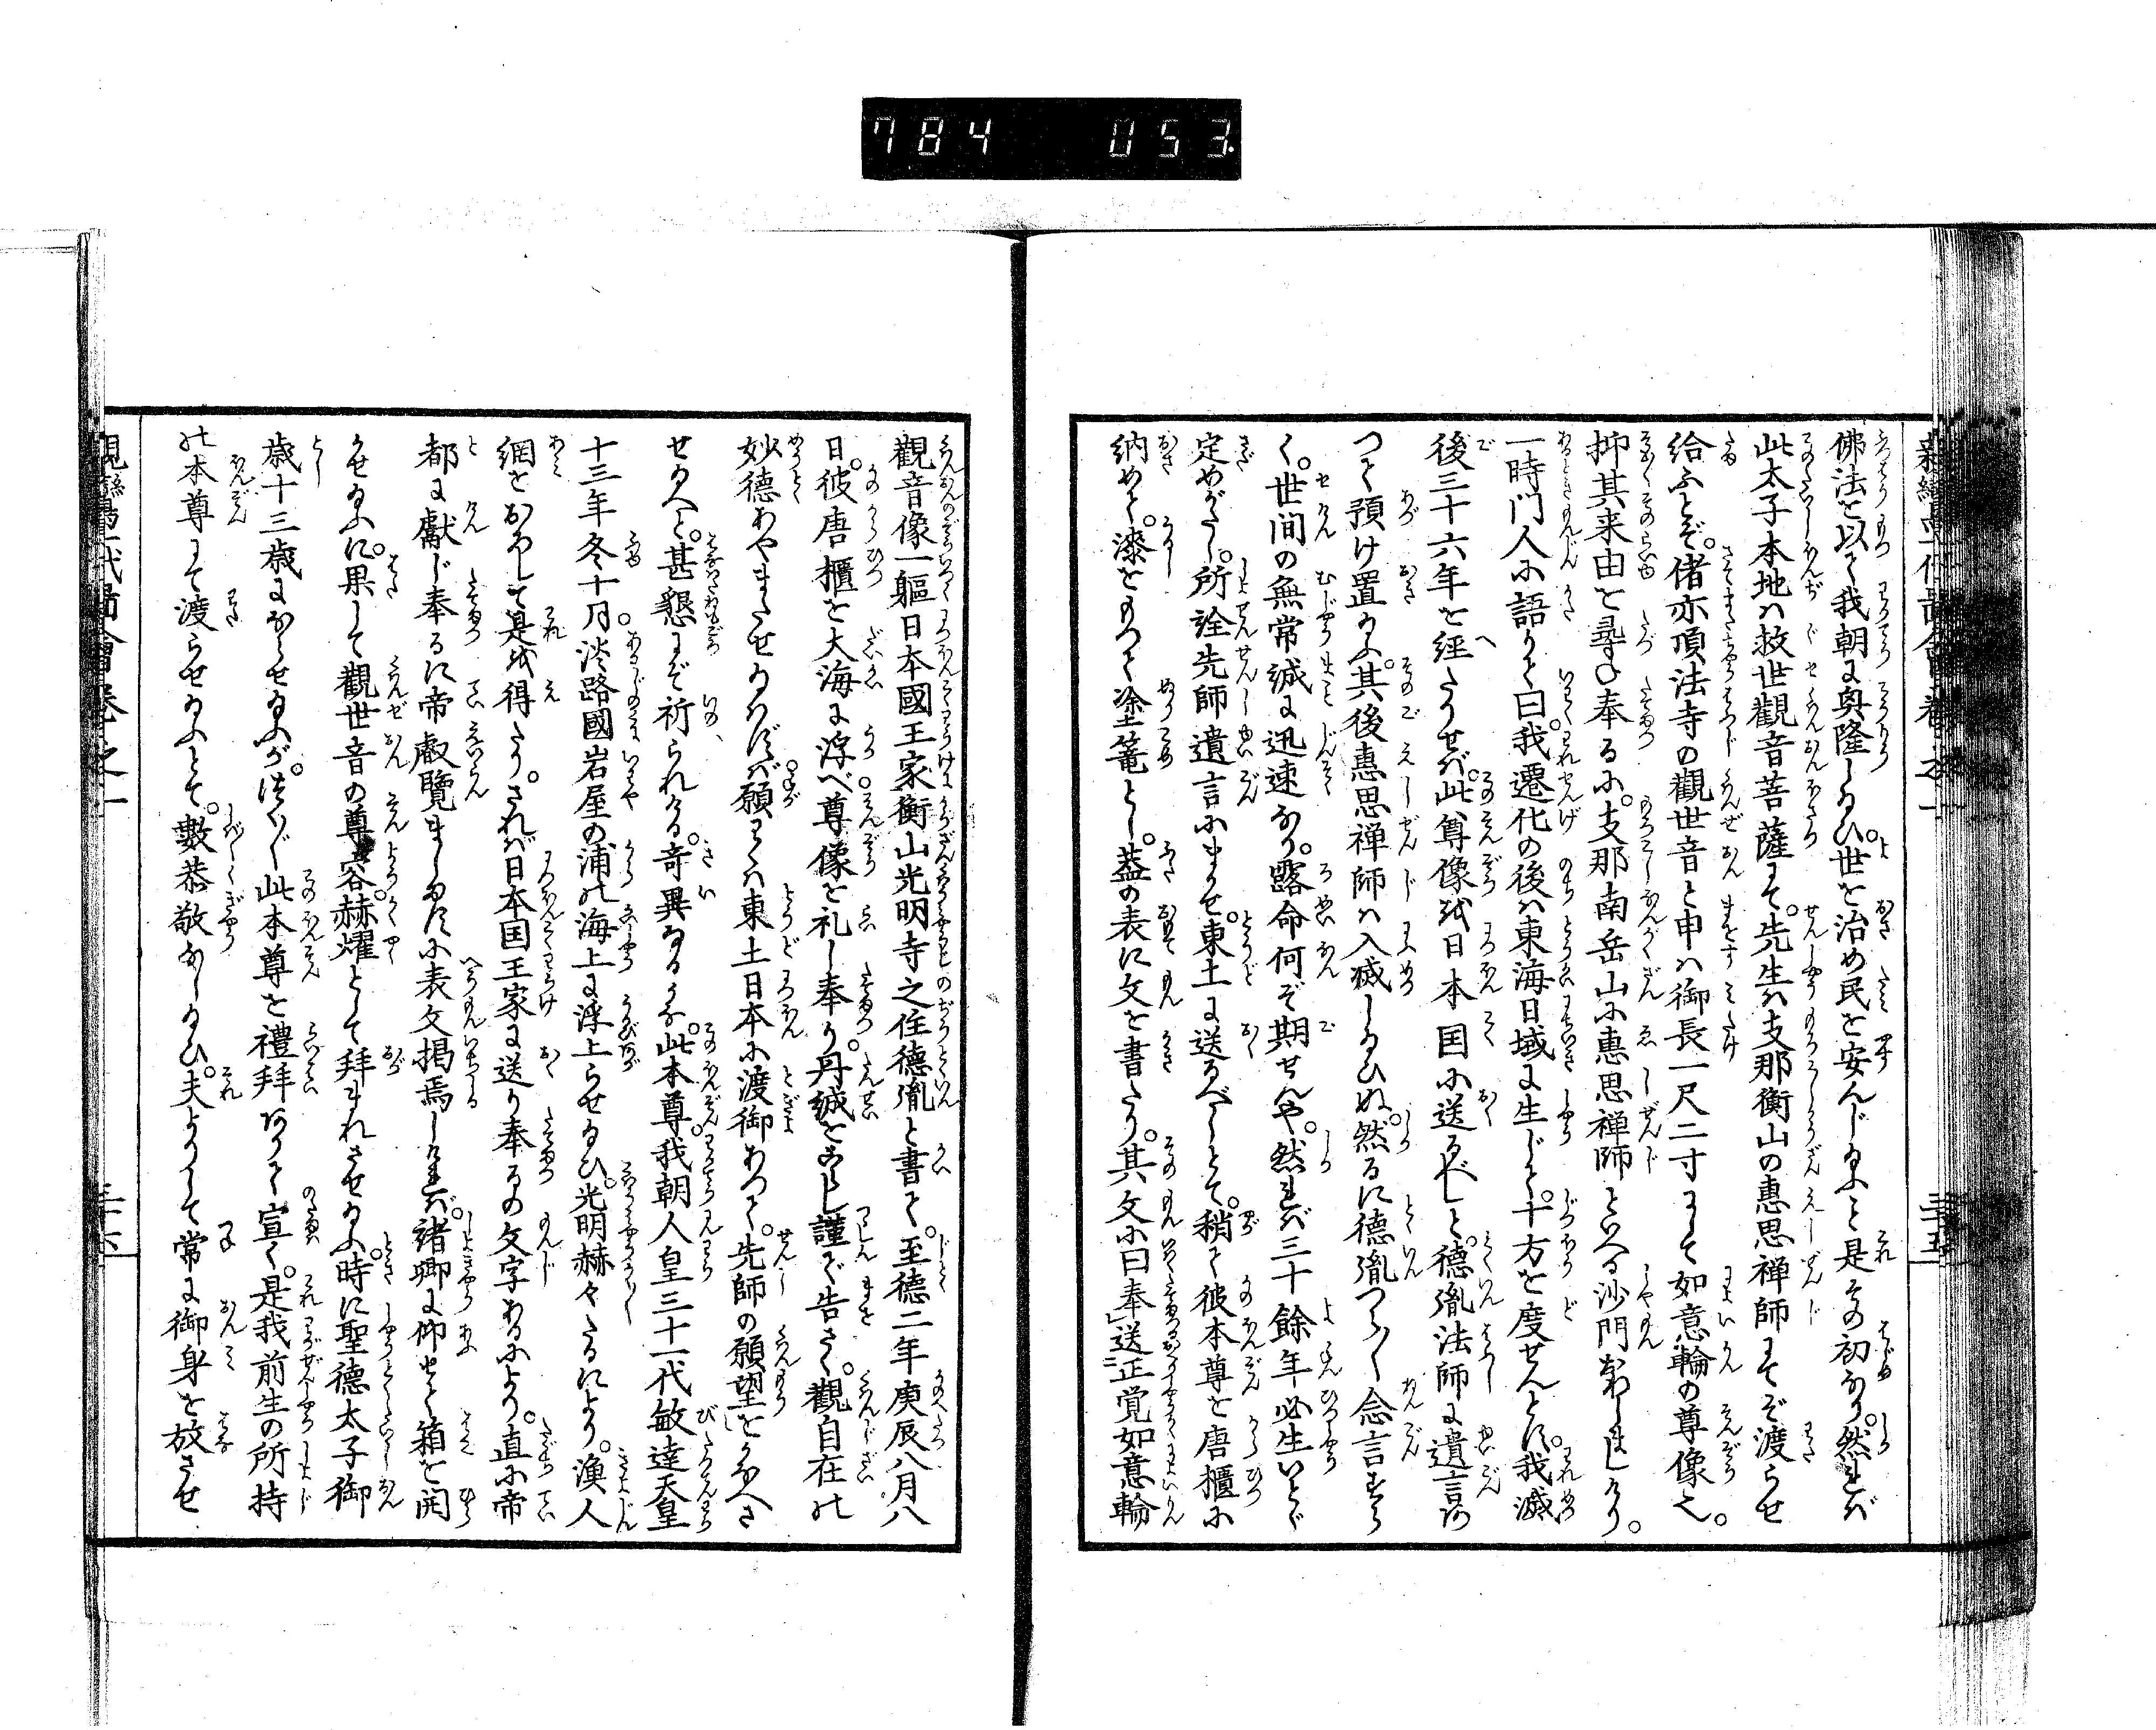 784 053
佛法を以て我朝に興隆し給ひ。世を治め民を安んじ給ふこと是その初なり。然れば
此太子本地は救世觀音菩薩にて。先生は支那衡山の惠思禅師にてぞ渡らせ
給ふとぞ。偖亦頂法寺の觀世音と申は御長一尺二寸にして如意輪の尊像也。
抑其来由を尋ね奉るに。支那南岳山に惠思禅師といへる沙門おわしましけり。
一時門人に語りて曰。我遷化の後は東海日域に生じて。十方を度せんとす。我滅
後三十六年を經たらせば。此尊像を日本国に送るべしと。德胤法師に遺言あ
つて預け置給ふ。其後惠思禅師は入滅し給ひぬ。然るに德胤つら〱念言すら
く。世間の無常誠に迅速なり。露命何ぞ期せんや。然れば三十餘年必生いとど
定めがたし。所詮先師遺言にまかせ。東土に送るべしとて。稍て彼本尊を唐櫃に
納めて。漆をもつて塗篭とし。蓋の表に文を書たり。其文に曰奉送正覚如意輪
觀音像一軀日本國王家衡山光明寺之住德胤と書て。至德二年庚辰八月八
日。彼唐櫃を大海に浮べ尊像を礼し奉り。丹誠をこらし謹で告さく。觀自在の
妙德あやまたせ給はずば。願くは東土日本に渡御あつて。先師の願望をかなへさ
せ給へと。甚懇にぞ祈られける。奇異なるかな此本尊。我朝人皇三十一代敏達天皇
十三年冬十月。淡路國岩屋の浦の海上に浮上らせ給ひ。光明赫々たるにより。漁人
網をおろして是を得たり。されば日本国王家に送り奉るの文字あるにより。直に帝
都に獻じ奉るに帝叡覽ましますに表文掲焉しければ。諸卿に仰せて箱を開
かせ給ふに。果して觀世音の尊容。赫燿として拜まれさせ給ふ。時に聖德太子御
歳十三歳にならせ給ふが。つらつら此本尊を禮拜ありて宣く。是我前生の所持
の本尊にて渡らせ給ふとて。數恭敬なし給ひ。夫よりして常に御身を放させ